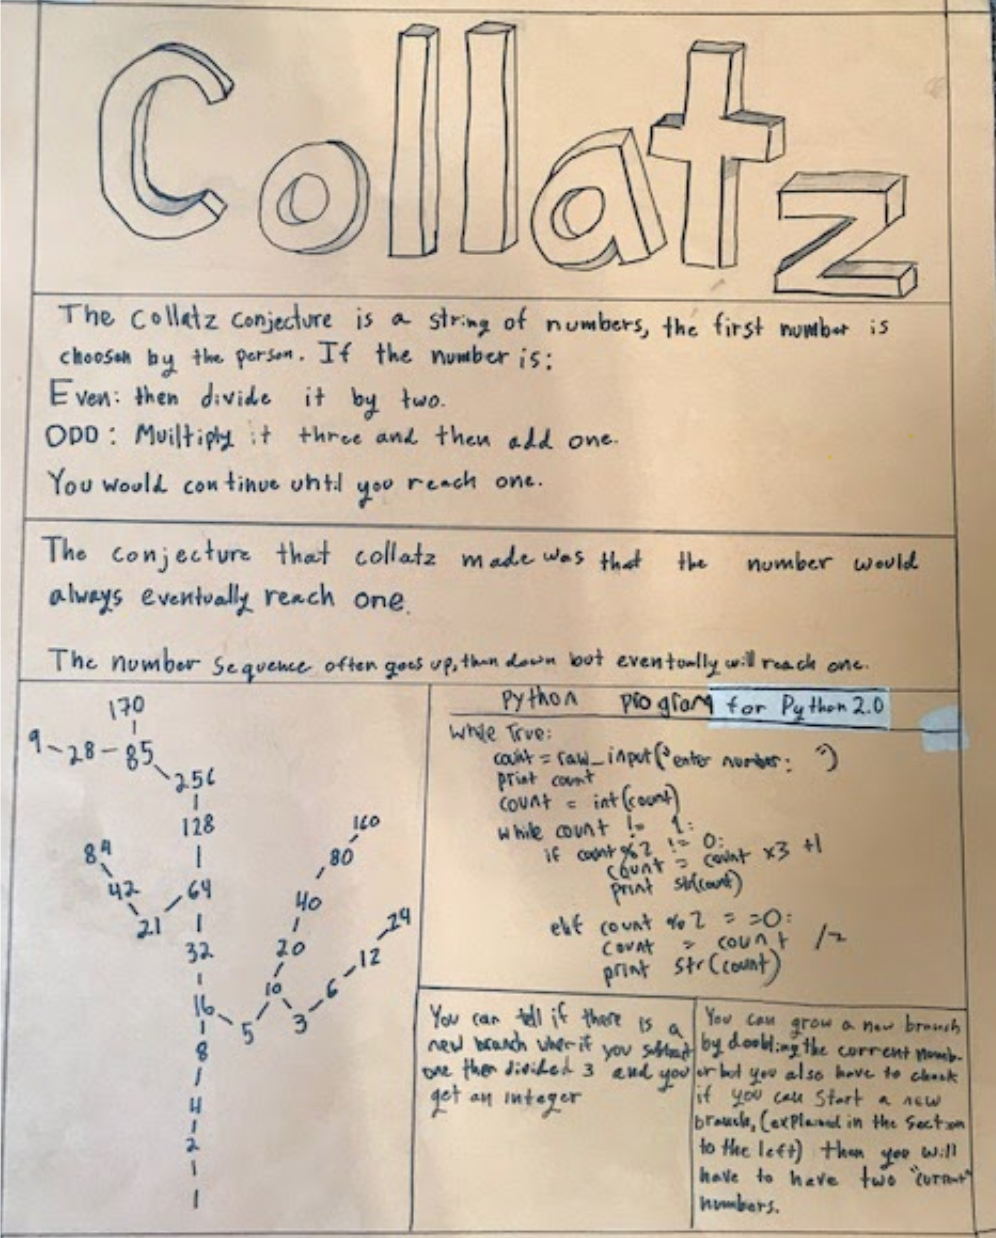 Collatz
The Collatz Conjecture is a string of numbers, the first number is
choosen by the person. If the number is:
Even: then divide it by two.
ODD: Muiltiply it three and then add one.
You would continue until you reach one.
The conjecture that collatz made was that the number would
always eventually reach one.
The number sequence often goes up, then down but eventually will reach one.
170
9 - 28 - 85
256
128
160
84
80
42
64
40
21
24
32
20
12
10
6
16
5
3
8
4
2
1
Python program for Python 2.0
while True:
count = raw_input("enter number: ")
print count
count = int(count)
while count != 1:
if count %2 != 0:
count = count x3 +1
print str(count)
elif count %2 = =0:
count = count /2
print str(count)
You can tell if there is a
new branch when if you subtract
one then divided 3 and you
get an integer
You can grow a new branch
by doubling the current numb-
er but you also have to check
if you can start a new
branch, (explained in the section
to the left) then you will
have to have two "current"
numbers.